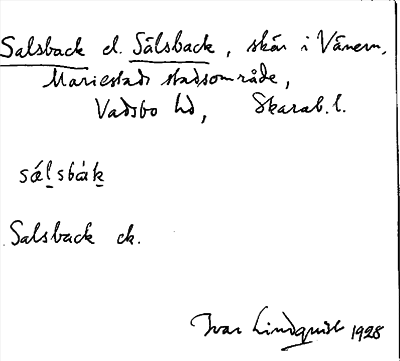 Salsback el. Sälsback, skär i Vänern,
Mariestads stadsområde,
Vadsbo hd, Skarab. l.
sǽl̠sbȧk̠
Salsback ek.
Ivar Lindquist 1928